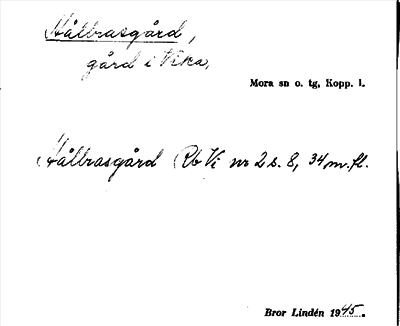 Hålbrasgård,
gård i Vika,
Mora sn o. tg, Kopp. l.
Hålbrasgård Rb Vi nr 2 s. 8, 34 m. fl.
Bror Lindén 1945.